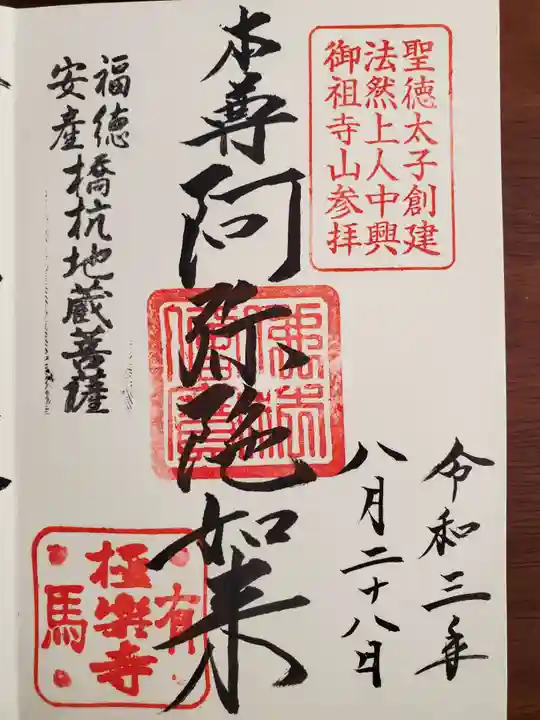 聖徳太子創建
法然上人中興
御祖寺山参拝
令和三年
八月二十八日
本尊阿弥陀如来
福徳
安産
橋杭地蔵菩薩
有馬
極楽寺